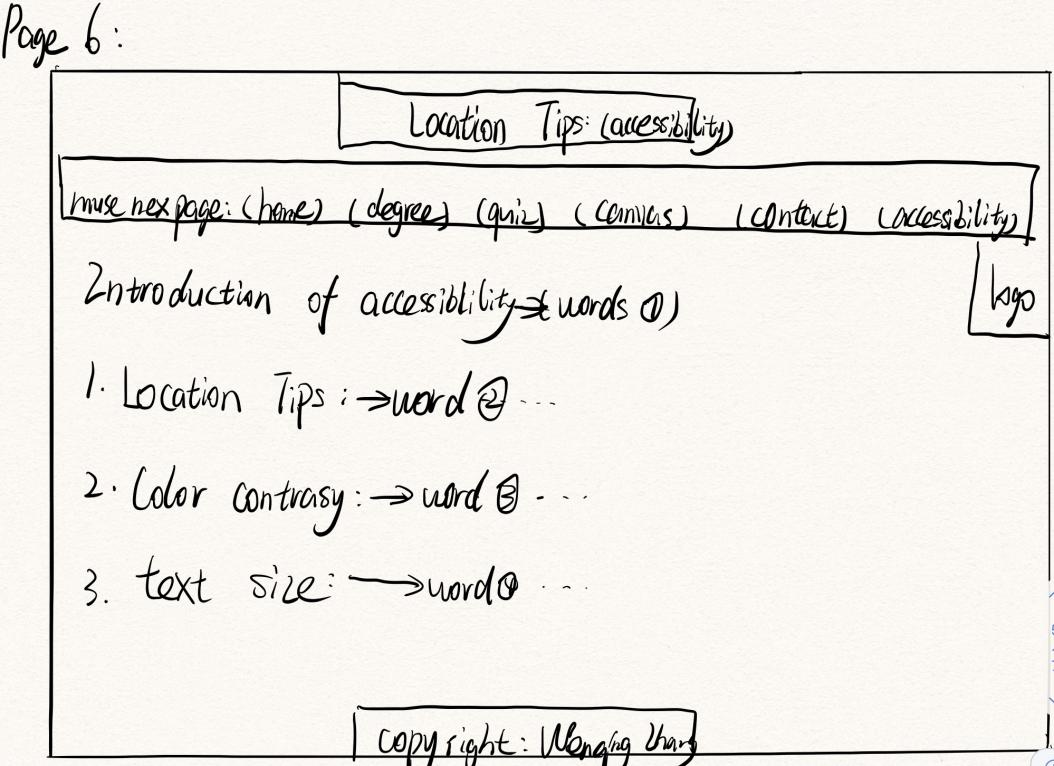 Page 6:
Location Tips: (accessibility)
(home) (degree) (quiz) (canvas) (contact) (accessibility)
Introduction of accessiblility→( words ①)
logo
1. Location Tips : →word ② ...
2. Color contrasy : → word ③ ....
3. text size: →word④ ...
copyright: